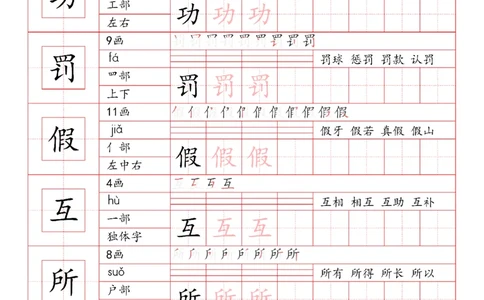 功
工部
左右
功 功 功
罚
9画
fá
罚球 惩罚 罚款 认罚
罒部
上下
罚 罚 罚
假
11画
jiǎ
假牙 假若 真假 假山
亻部
左中右
假 假 假
互
4画
hù
互相 相互 互助 互补
一部
独体字
互 互 互
所
8画
suǒ
所有 所得 所长 所以
户部
所 所 所